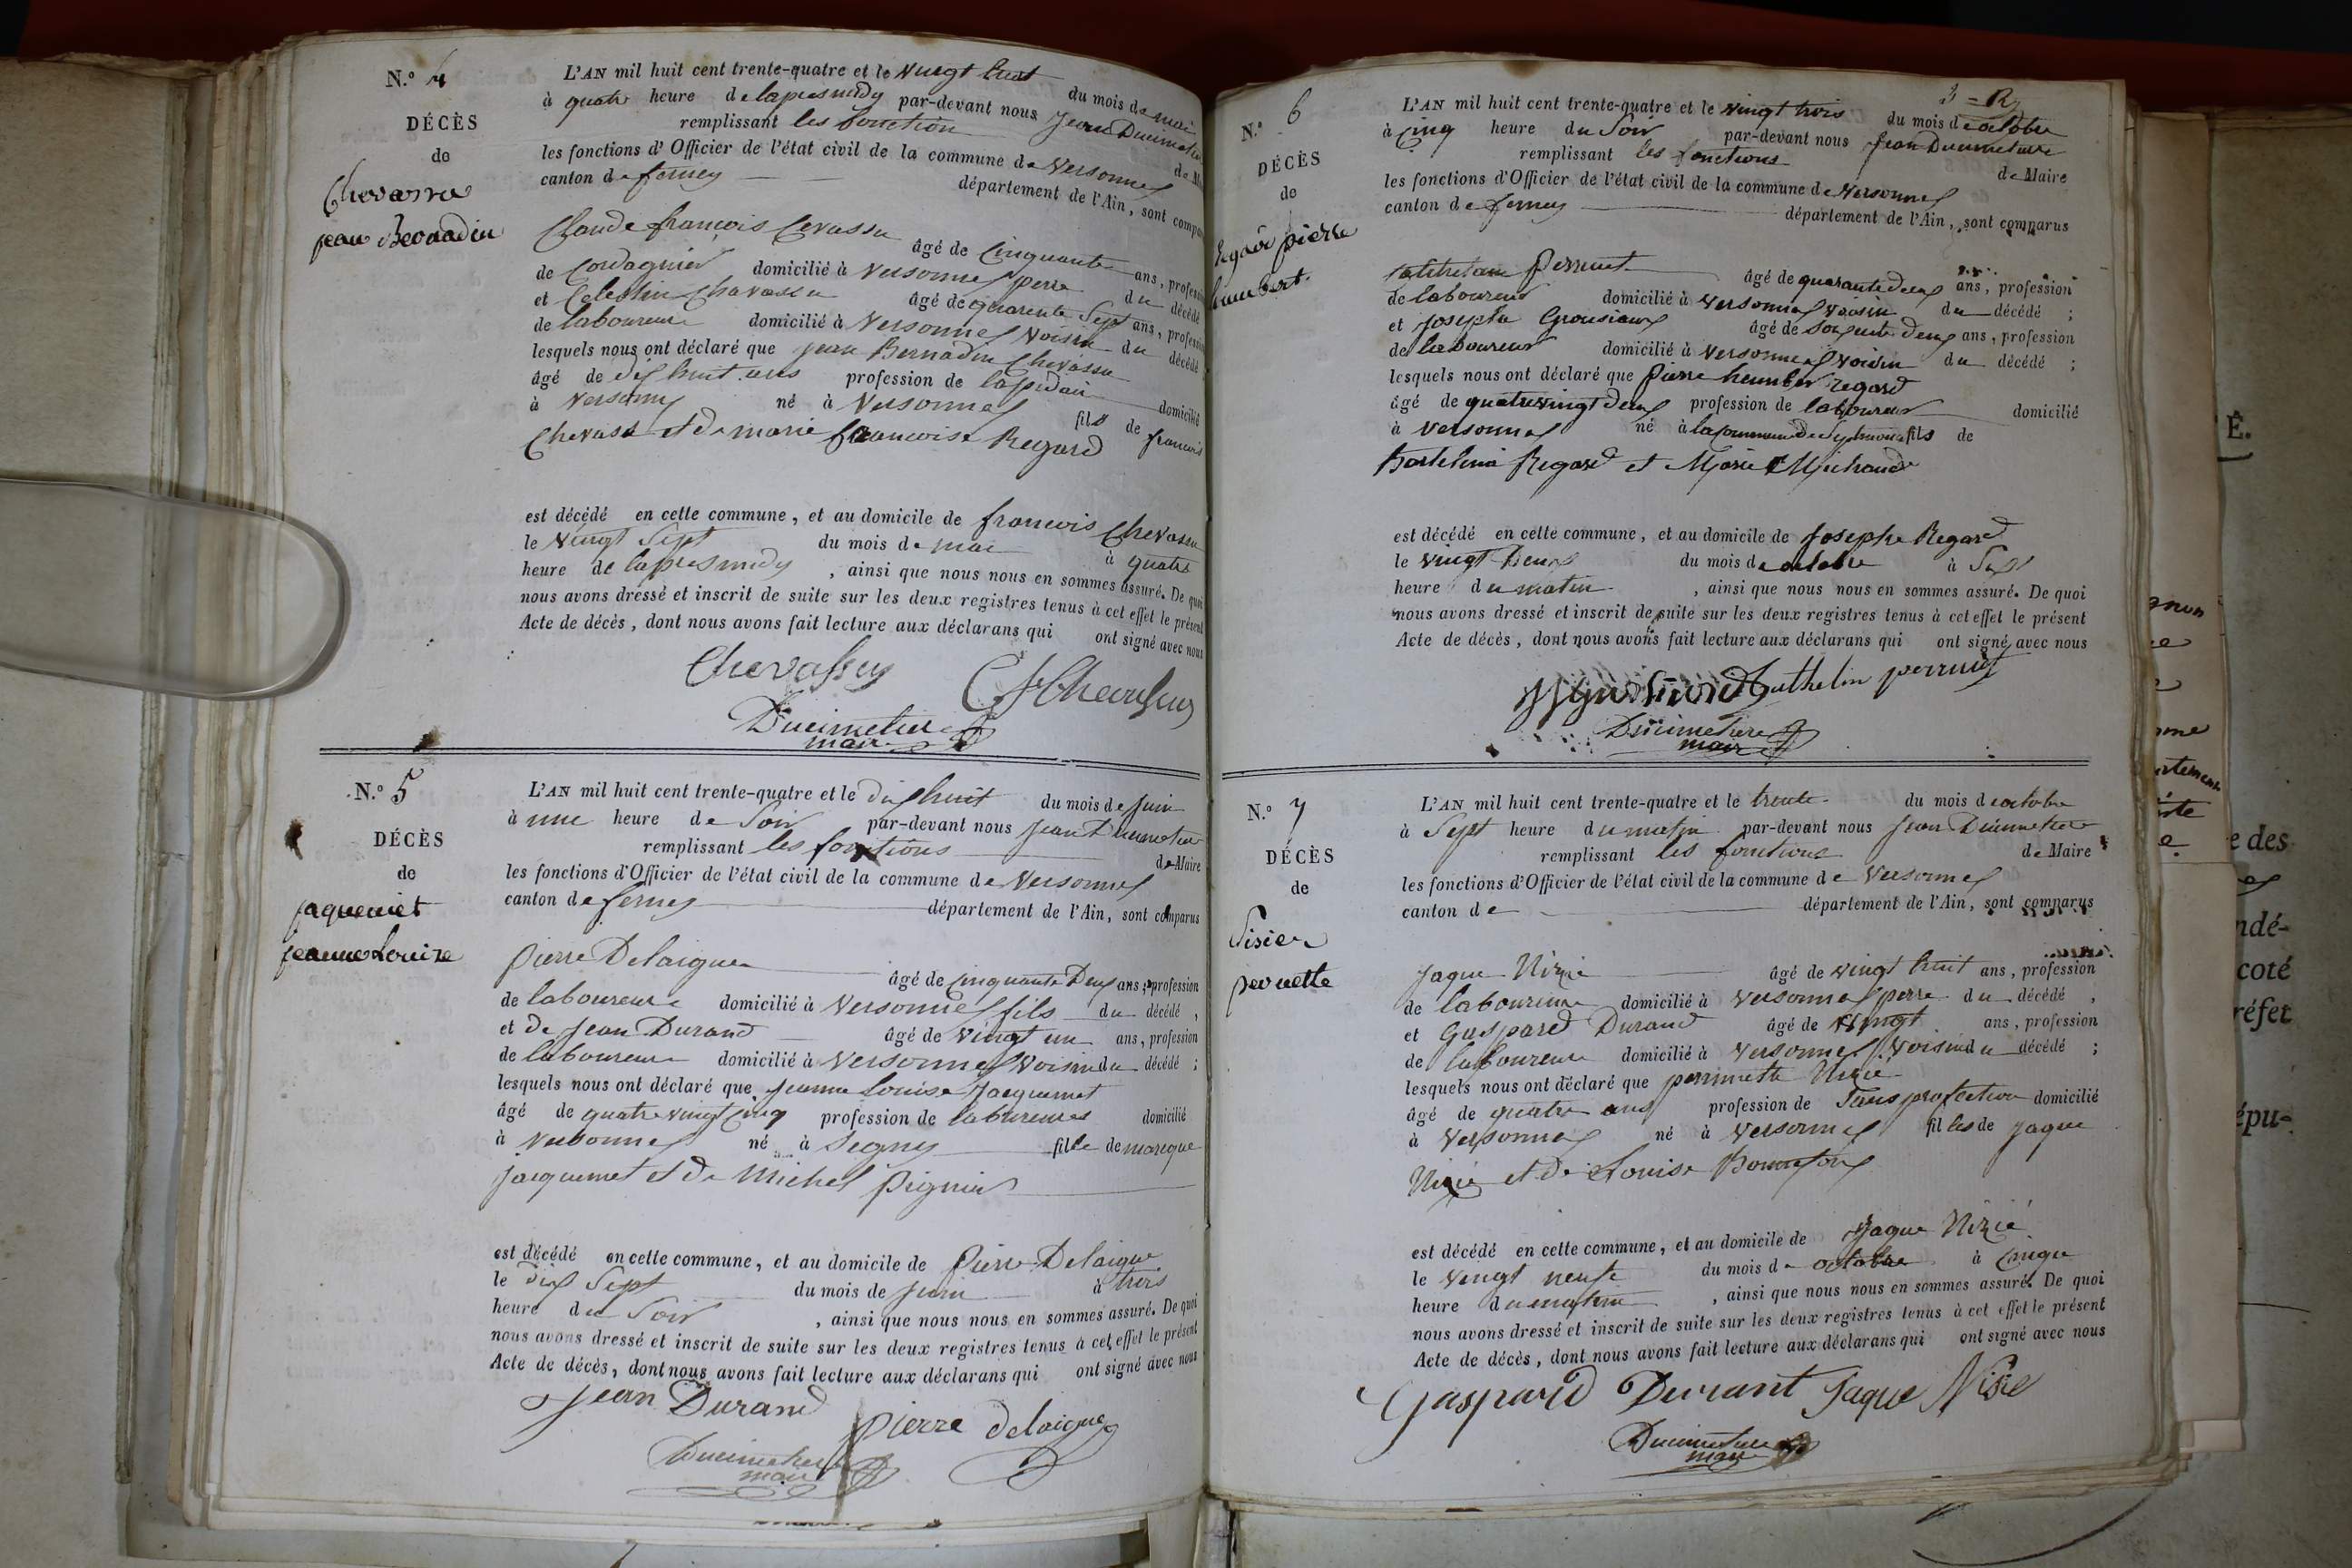 N.º 4
DÉCÈS
de
Chevassu
jean Bernadin
L'AN mil huit cent trente-quatre et le vingt huit du mois de mai
à quatre heure de lapresmidy par-devant nous Jean Ducimetier
remplissant les fonction de Maire
les fonctions d'Officier de l'état civil de la commune de Versonnex
canton de ferney département de l'Ain, sont comparus
Claude françois Chevassu âgé de Cinquante ans, profession
de Cordagnier domicilié à Versonnex perre du décédé
et Celestin Chavassu âgé de quarente Sept ans, profession
de laboureure domicilié à Versonnex Voisin du décédé
lesquels nous ont déclaré que jean Bernadin Chevassu
âgé de dix huit ans profession de lapidair domicilié
à Versonnex né à Versonnex fils de francois
Chevassu et de marie francoise Regard
est décédé en cette commune, et au domicile de francois Chevassu
le vingt Sept du mois de mai à quatre
heure de lapresmidy, ainsi que nous nous en sommes assuré. De quoi
nous avons dressé et inscrit de suite sur les deux registres tenus à cet effet le présent
Acte de décès, dont nous avons fait lecture aux déclarans qui ont signé avec nous
Chevassu
Ducimetier
mair
N.º 5
DÉCÈS
de
jaquemet
jeanne Louise
L'AN mil huit cent trente-quatre et le dix huit du mois de Juin
à une heure de Soir par-devant nous Jean Ducimetier
remplissant les fonctions de Maire
les fonctions d'Officier de l'état civil de la commune de Versonnex
canton de ferney département de l'Ain, sont comparus
Pierre Delaigue âgé de Cinquante Deux ans, profession
de laboureure domicilié à Versonnex fils du décédé,
et de Jean Durand âgé de Vingt un ans, profession
de laboureure domicilié à Versonnex Voisin du décédé;
lesquels nous ont déclaré que Jeanne Louise Jacquemet
âgé de quatre vingt Cinq profession de laboureures domicilié
à Versonnex né à Segny fille de
Jacquemet et de Michel
est décédé en cette commune, et au domicile de Pierre Delaigue
le dix Sept du mois de Juin à trois
heure du Soir, ainsi que nous nous en sommes assuré. De quoi
nous avons dressé et inscrit de suite sur les deux registres tenus à cet effet le présent
Acte de décès, dont nous avons fait lecture aux déclarans qui ont signé avec nous
Jean Durand
pierre delaigue
Ducimetier
mair
N.º 6
DÉCÈS
de
Regard pierre
humbert.
L'AN mil huit cent trente-quatre et le vingt trois du mois d octobre
à Cinq heure du Soir par-devant nous Jean Ducimetiere
remplissant les fonctions de Maire
les fonctions d'Officier de l'état civil de la commune de Versonnex
canton de ferney département de l'Ain, sont comparus
perrunet âgé de quarante deux ans, profession
de laboureur domicilié à Versonnex Voisin du décédé;
et Josepha âgé de Soixente deux ans, profession
de laboureur domicilié à Versonnex Voisin du décédé;
lesquels nous ont déclaré que pierre regard
âgé de quatre vingt deux profession de laboureur domicilié
à Versonnex né à la commune de fils de
Regard et Marie Michaud
est décédé en cette commune, et au domicile de Josephe Regard
le vingt Deux du mois d octobre à Sept
heure du matin, ainsi que nous nous en sommes assuré. De quoi
nous avons dressé et inscrit de suite sur les deux registres tenus à cet effet le présent
Acte de décès, dont nous avons fait lecture aux déclarans qui ont signé avec nous
perrunet
Ducimetiere
mair
N.º 7
DÉCÈS
de
Nisier
pernette
L'AN mil huit cent trente-quatre et le trente du mois d octobre
à Sept heure du matin par-devant nous Jean Ducimetiere
remplissant les fonctions de Maire
les fonctions d'Officier de l'état civil de la commune de Versonnex
canton de département de l'Ain, sont comparus
Jaque Nizié âgé de vingt huit ans, profession
de laboureure domicilié à Versonnex perre du décédé,
et Gaspard Durand âgé de vingt ans, profession
de laboureure domicilié à Versonnex Voisin du décédé;
lesquels nous ont déclaré que pernnette Nizié
âgé de quatre ans profession de Sans profection domicilié
à Versonnex né à Versonnex filles de Jaque
Nizié et de Louise
est décédé en cette commune, et au domicile de Jaque Nizié
le vingt neufe du mois d octobre à Cinque
heure du matin, ainsi que nous nous en sommes assuré. De quoi
nous avons dressé et inscrit de suite sur les deux registres tenus à cet effet le présent
Acte de décès, dont nous avons fait lecture aux déclarans qui ont signé avec nous
Gaspard Durant Jaque Nisié
Ducimetiere
mair